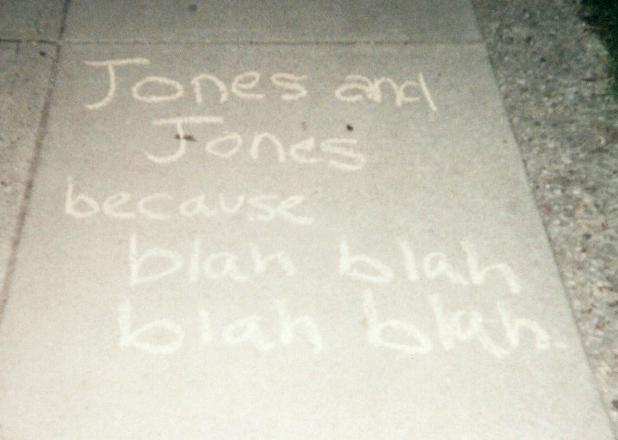 Jones and
Jones
because
blah blah
blah blah.